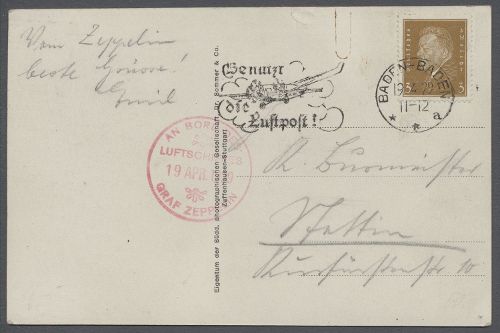 Vom Zeppelin
beste Grüsse!
Emil
Benutzt
die
Luftpost!
BADEN-BADEN
11-12
a
3
3
AN BORD DES
LUFTSCHIFFES
19 APR.
GRAF ZEPPELIN
Eigentum der Südd. photographischen Gesellschaft Dr. Sommer & Co.
Zuffenhausen-Stuttgart
Stettin
Kurfürstenstr 10